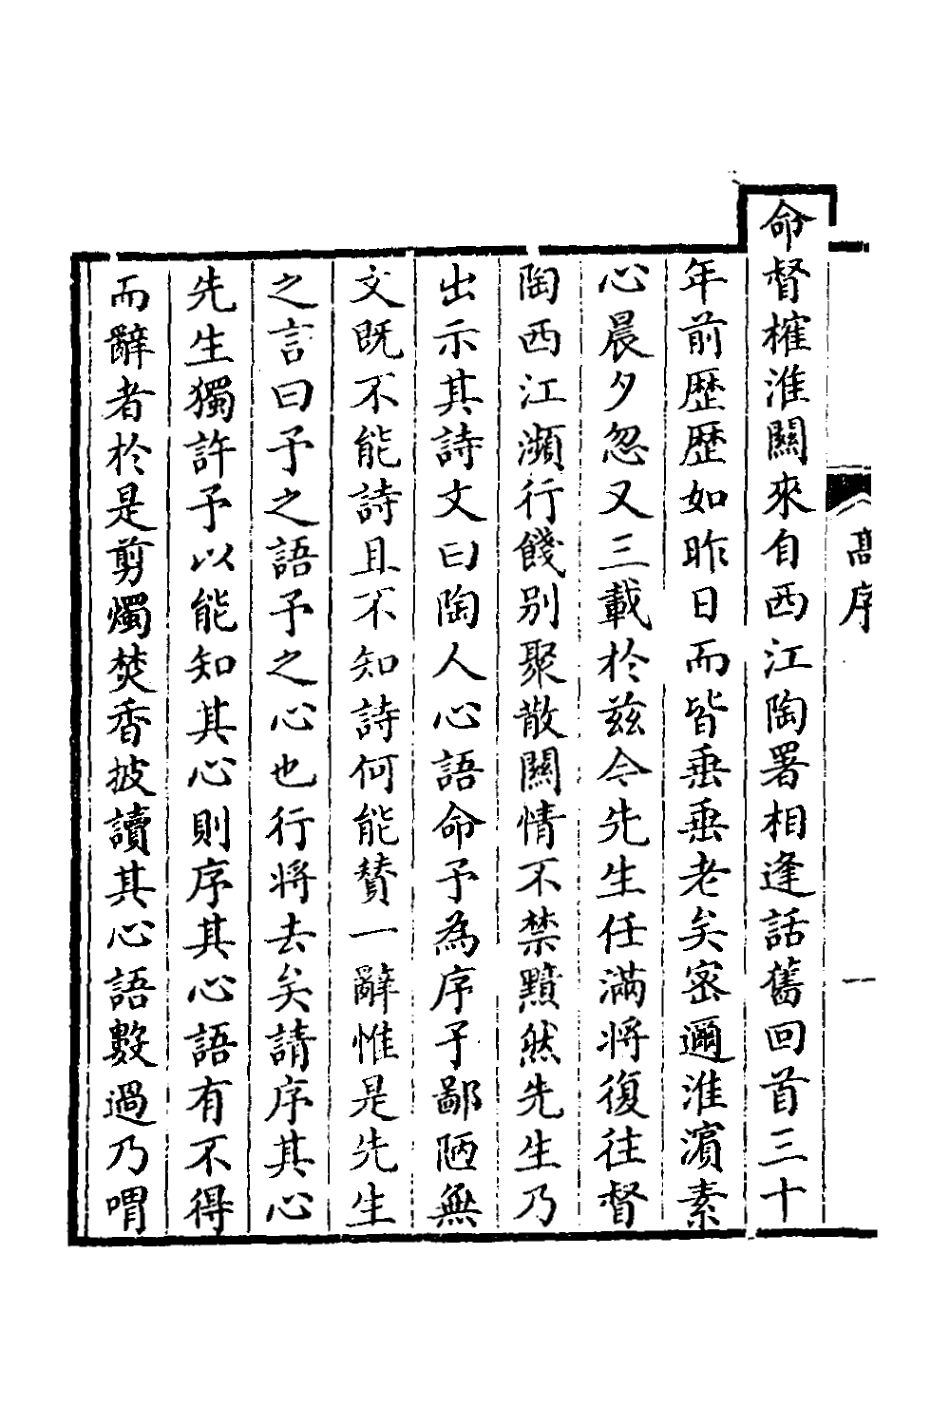 高序
一
命督榷淮關來自西江陶署相逢話舊回首三十
年前歷歷如昨日而皆垂垂老矣密邇淮濵素
心晨夕忽又三載於兹今先生任滿將復往督
陶西江瀕行餞别聚散關情不禁黯然先生乃
出示其詩文曰陶人心語命予為序予鄙陋無
文既不能詩且不知詩何能賛一辭惟是先生
之言曰予之語予之心也行將去矣請序其心
先生獨許予以能知其心則序其心語有不得
而辭者於是剪燭焚香披讀其心語數過乃喟